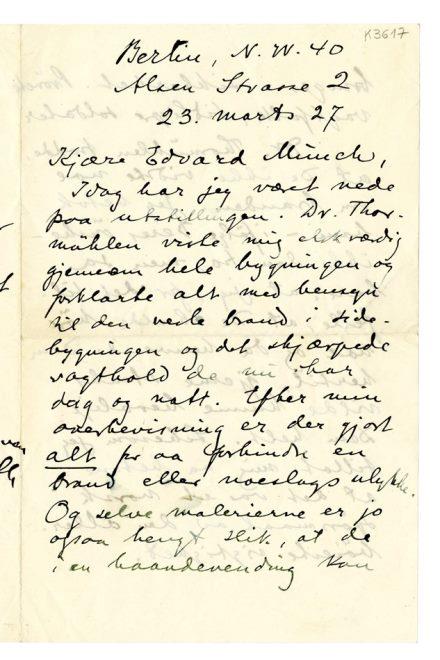 K3617
Berlin, N.W. 40
Alsen Strasse 2
23. marts 27
Kjære Edvard Münch,
Idag har jeg været nede
paa utstillingen. Dr. Thor-
mählen viste mig elskværdig
gjennem hele bygningen og
forklarte alt med hensyn
til den vesle brand i side-
bygningen og det skjærpede
vagthold de nu har
dag og natt. Efter min
overbevisning er der gjort
alt for aa forhindre en
brand eller noeslags ulykke.
Og selve malerierne er jo
ogsaa hengt slik, at de
i en haandevending kan